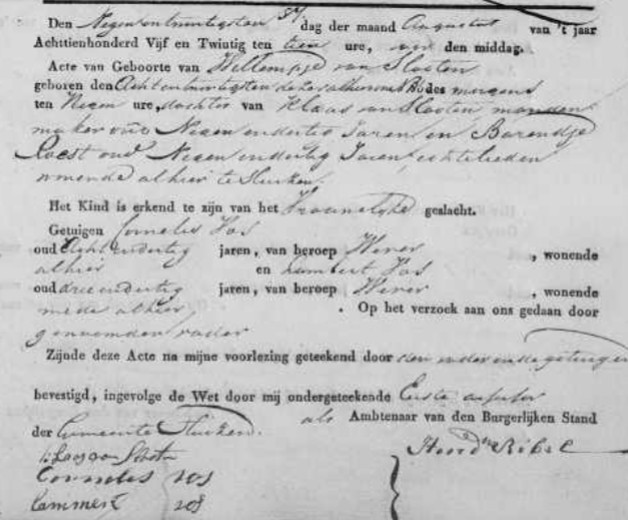 Den Negen en twintigsten dag der maand Augustus van 't jaar
Achttienhonderd Vijf en Twintig ten tien ure, voor den middag.
Acte van Geboorte van Willempje van Slooten
geboren den Acht en twintigsten dezer alhier des morgens
ten Negen ure, dochter van Klaas van Slooten manden
maker oud Negen en dertig Jaren en Barendje
Roest oud Negen en dertig Jaren, echtelieden
wonende alhier te
Het Kind is erkend te zijn van het Vrouwelijke geslacht.
Getuigen Cornelis Vos
oud Acht en dertig jaren, van beroep Wever , wonende
alhier en Lambert Vos
oud drie en dertig jaren, van beroep Wever , wonende
mede alhier . Op het verzoek aan ons gedaan door
genoemden vader
Zijnde deze Acte na mijne voorlezing geteekend door den vader en de getuigen
bevestigd, ingevolge de Wet door mij ondergeteekende Eerste assessor
als Ambtenaar van den Burgerlijken Stand
der Gemeente
Klaas van Slooten
Corneles vos
Lammert vos